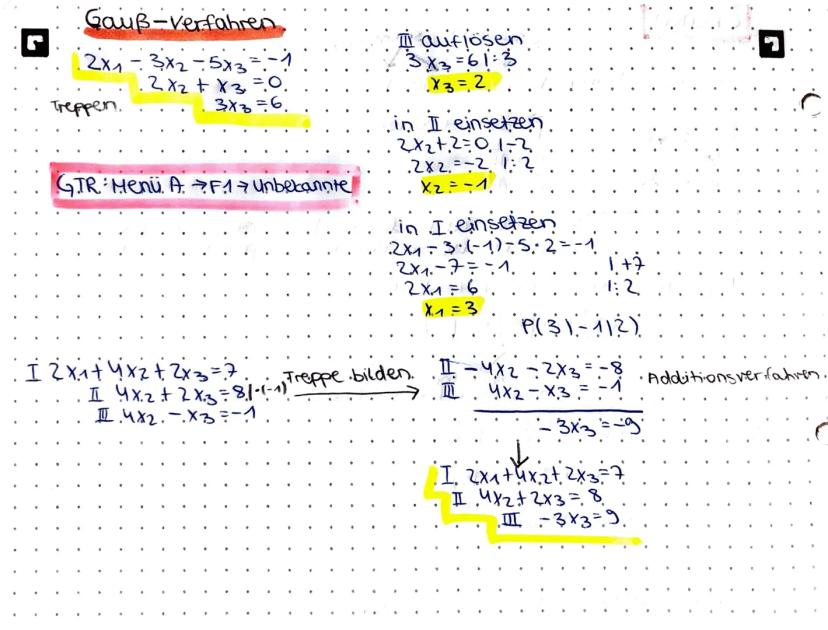 Gauß-Verfahren
2x₁ - 3x₂ - 5x₃ = -1
2x₂ + x₃ = 0
Treppen 3x₃ = 6
GTR: Menü A → F1 → Unbekannte
III auflösen
3x₃ = 6 | :3
x₃ = 2
in II einsetzen
2x₂ + 2 = 0 | -2
2x₂ = -2 | :2
x₂ = -1
in I einsetzen
2x₁ - 3·(-1) - 5·2 = -1
2x₁ - 7 = -1 | +7
2x₁ = 6 | :2
x₁ = 3
P(3|-1|2)
I 2x₁ + 4x₂ + 2x₃ = 7
II 4x₂ + 2x₃ = 8 |·(-1)
III 4x₂ - x₃ = -1
Treppe bilden
II -4x₂ - 2x₃ = -8
III 4x₂ - x₃ = -1
Additionsverfahren
-3x₃ = -9
I 2x₁ + 4x₂ + 2x₃ = 7
II 4x₂ + 2x₃ = 8
III -3x₃ = 9